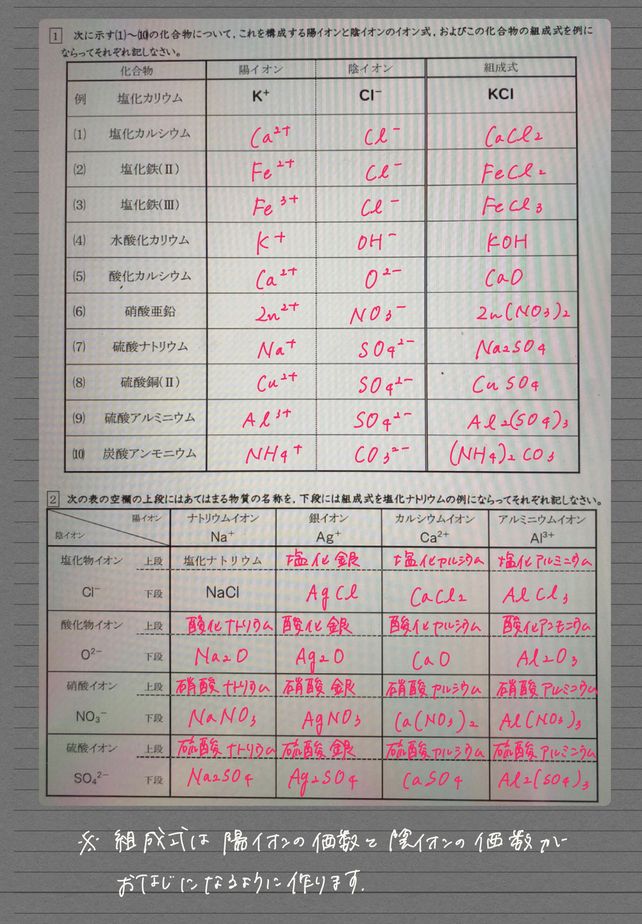 1 次に示す(1)～(10)の化合物について，これを構成する陽イオンと陰イオンのイオン式，およびこの化合物の組成式を例に
ならってそれぞれ記しなさい。
化合物 陽イオン 陰イオン 組成式
例 塩化カリウム K⁺ Cl⁻ KCl
(1) 塩化カルシウム Ca²⁺ Cl⁻ CaCl₂
(2) 塩化鉄(Ⅱ) Fe²⁺ Cl⁻ FeCl₂
(3) 塩化鉄(Ⅲ) Fe³⁺ Cl⁻ FeCl₃
(4) 水酸化カリウム K⁺ OH⁻ KOH
(5) 酸化カルシウム Ca²⁺ O²⁻ CaO
(6) 硝酸亜鉛 Zn²⁺ NO₃⁻ Zn(NO₃)₂
(7) 硫酸ナトリウム Na⁺ SO₄²⁻ Na₂SO₄
(8) 硫酸銅(Ⅱ) Cu²⁺ SO₄²⁻ CuSO₄
(9) 硫酸アルミニウム Al³⁺ SO₄²⁻ Al₂(SO₄)₃
(10) 炭酸アンモニウム NH₄⁺ CO₃²⁻ (NH₄)₂CO₃
2 次の表の空欄の上段にはあてはまる物質の名称を，下段には組成式を塩化ナトリウムの例にならってそれぞれ記しなさい。
陽イオン ナトリウムイオン 銀イオン カルシウムイオン アルミニウムイオン
陰イオン Na⁺ Ag⁺ Ca²⁺ Al³⁺
塩化物イオン 上段 塩化ナトリウム 塩化銀 塩化カルシウム 塩化アルミニウム
Cl⁻ 下段 NaCl AgCl CaCl₂ AlCl₃
酸化物イオン 上段 酸化ナトリウム 酸化銀 酸化カルシウム 酸化アンモニウム
O²⁻ 下段 Na₂O Ag₂O CaO Al₂O₃
硝酸イオン 上段 硝酸ナトリウム 硝酸銀 硝酸カルシウム 硝酸アルミニウム
NO₃⁻ 下段 NaNO₃ AgNO₃ Ca(NO₃)₂ Al(NO₃)₃
硫酸イオン 上段 硫酸ナトリウム 硫酸銀 硫酸カルシウム 硫酸アルミニウム
SO₄²⁻ 下段 Na₂SO₄ Ag₂SO₄ CaSO₄ Al₂(SO₄)₃
※ 組成式は陽イオンの価数と陰イオンの価数が
おなじになるように作ります.